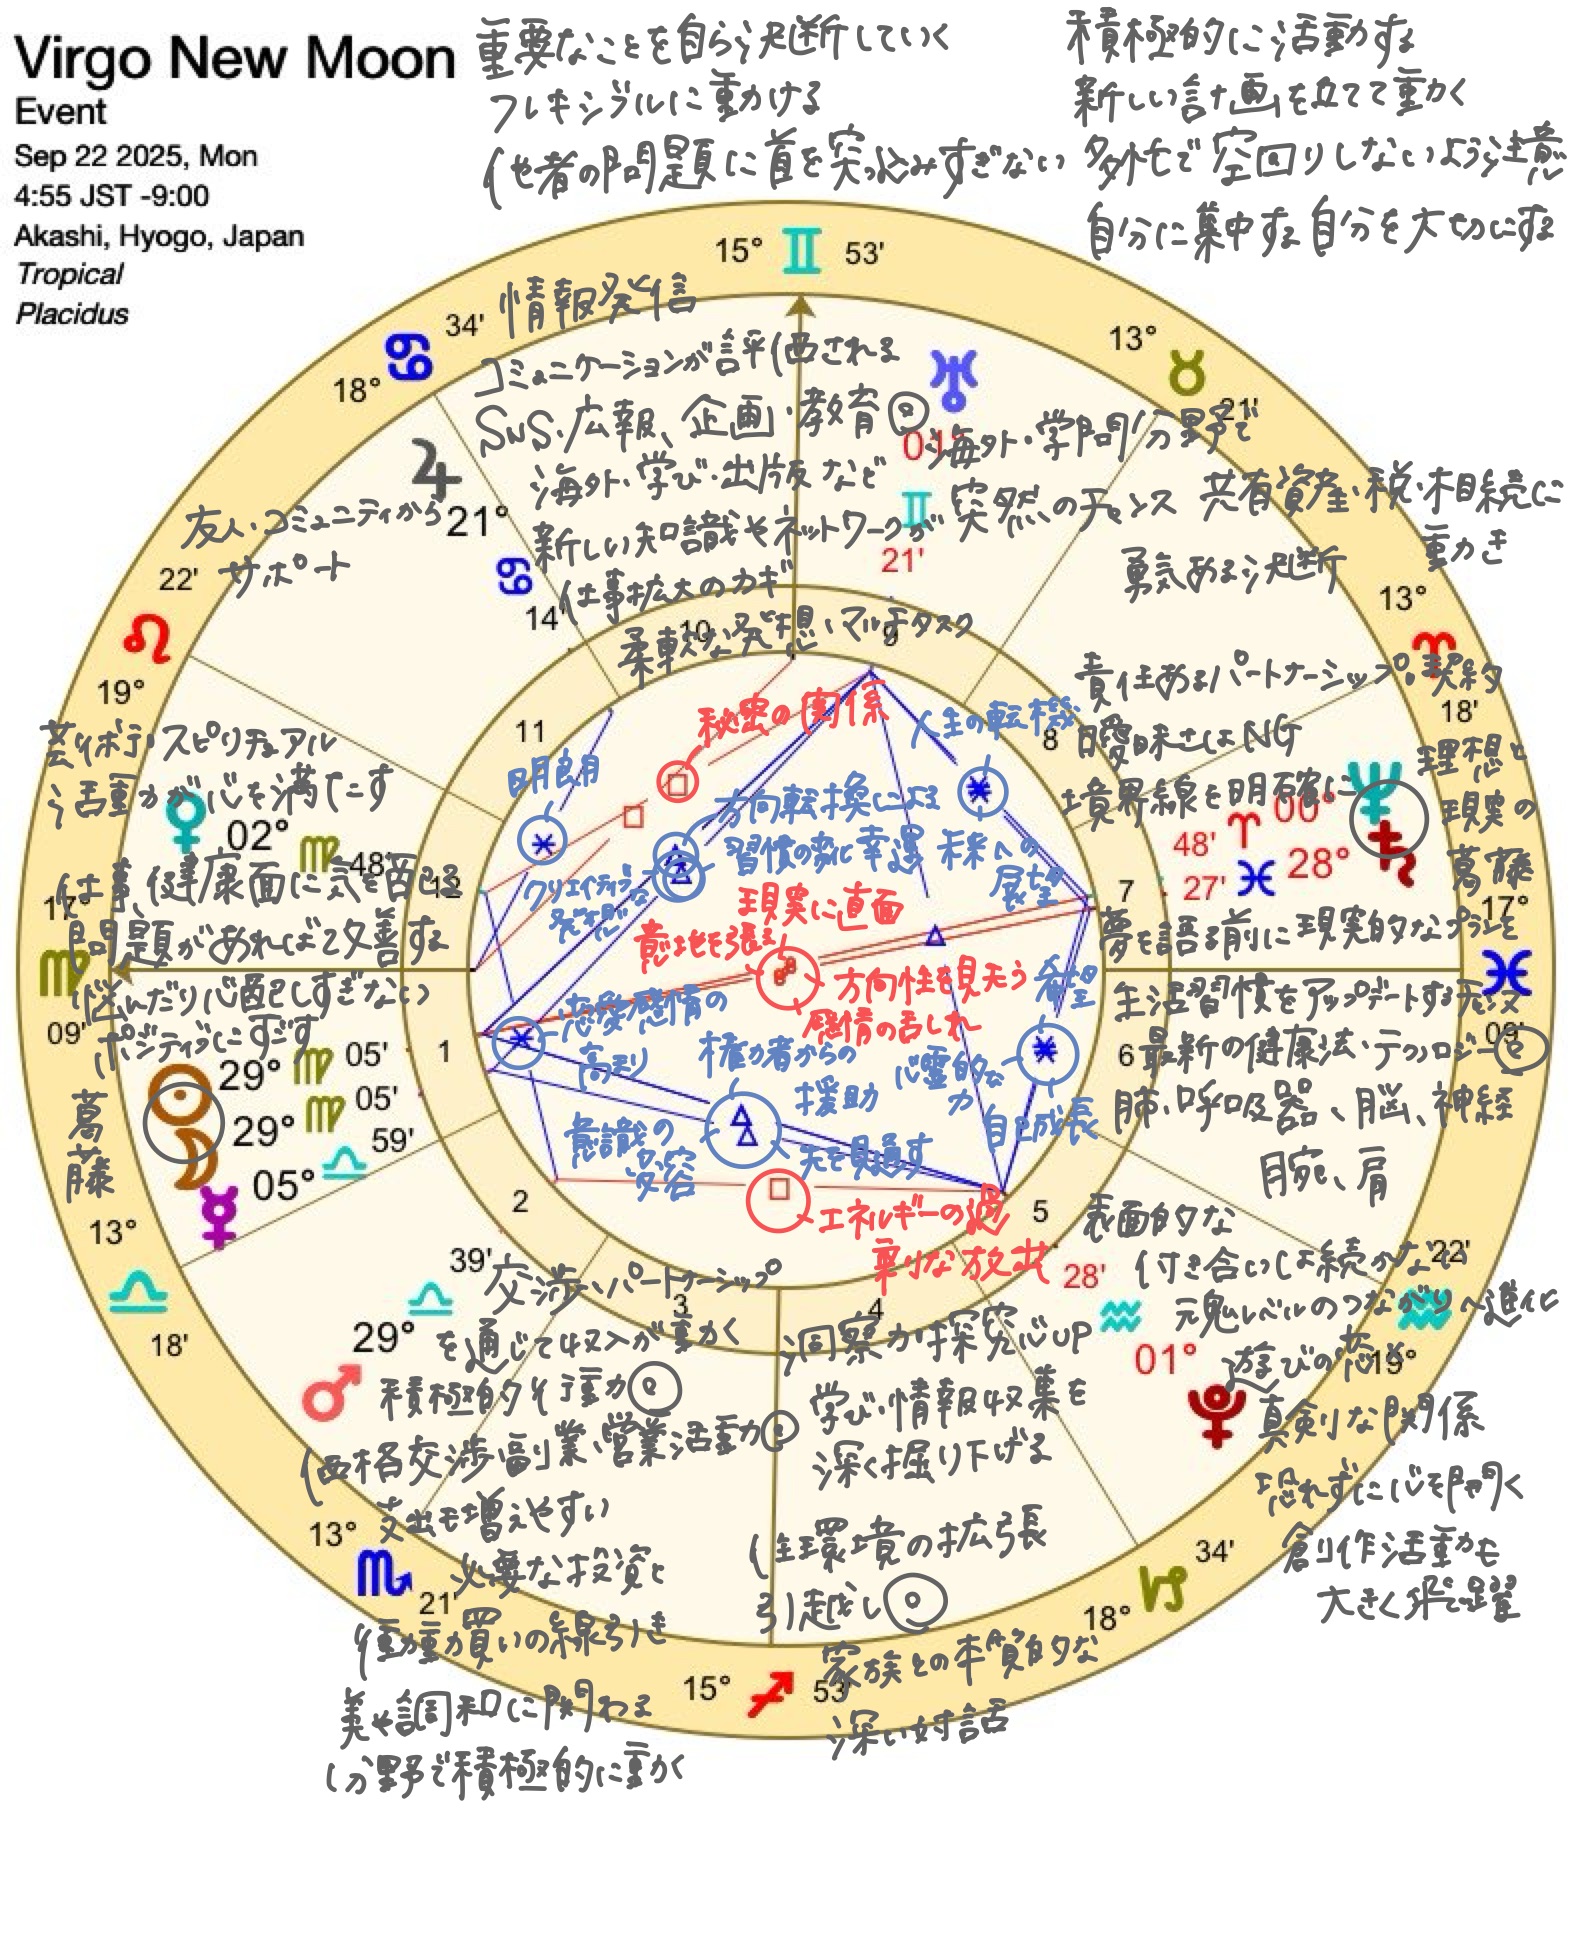 Virgo New Moon
Event
Sep 22 2025, Mon
4:55 JST -9:00
Akashi, Hyogo, Japan
Tropical
Placidus
重要なことを自ら決断していく
フレキシブルに動ける
他者の問題に首を突っ込みすぎない
積極的に活動する
新しい計画を立てて動く
多忙で空回りしないよう注意
自分に集中する 自分を大切にする
15° ♊ 53'
34' ♋ 18°
13° ♉ 21'
情報発信
コミュニケーションが評価される
SNS、広報、企画・教育◎
海外・学び・出版など
新しい知識やネットワークが
仕事拡大のカギ
柔軟な発想、マルチタスク
♅ 01° ♊ 21'
海外・学問分野で
突然のチャンス
共有資産・税・相続に
動き
勇気ある決断
♃ 21° ♋ 14'
友人・コミュニティから
サポート
22' ♌ 19°
13° ♈ 18'
責任あるパートナーシップ・契約
曖昧さはNG
境界線を明確に
理想と
現実の
葛藤
♆ 00° ♈ 48'
28° ♓ 27'
夢を語る前に現実的なプランを
芸術 スピリチュアル
活動が心を満たす
♀ 02° ♍ 48'
仕事、健康面に気を配る
問題があれば改善する
悩んだり心配しすぎない
ポジティブにすごす
17° ♍ 09'
17° ♓ 09'
☉ 29° ♍ 05'
☽ 29° ♍ 05'
☿ 05° ♎ 59'
葛藤
秘密の関係
人生の転機
明朗
方向転換による
習慣の変化 幸運
未来への
展望
クリエイティブな
発想
現実に直面
意地を張る
方向性を見失う
感情の乱れ
希望
恋愛感情の
高まり
権力者からの
援助
心霊的な
力
自己成長
意識の
変容
先を見通す
エネルギーの過
剰な放出
1
2
3
4
5
6
7
8
9
10
11
12
生活習慣をアップデートする
最新の健康法・テクノロジー◎
肺、呼吸器、脳、神経
腕、肩
13° ♎ 18'
♂ 29° ♎ 39'
交渉、パートナーシップ
を通じて収入が動く
積極的な行動力◎
価格交渉、副業、営業活動◎
支出も増えやすい
必要な投資と
衝動買いの線引き
美や調和に関わる
分野で積極的に動く
13° ♏ 21'
洞察力、探究心UP
学び・情報収集を
深く掘り下げる
住環境の拡張
引越し◎
家族との本質的な
深い対話
15° ♐ 53'
18° ♑ 34'
表面的な
付き合いは続かない
魂レベルのつながりへ進化
遊びの恋×
真剣な関係
恐れずに心を開く
創作活動も
大きく飛躍
♇ 01° ♒ 28'
22' ♒ 19°